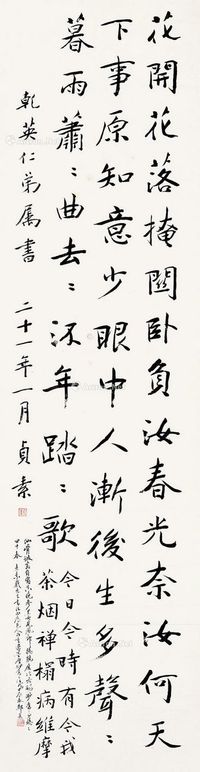 花開花落掩關臥負汝春光奈汝何天
下事原知意少眼中人漸後生多聲〻
暮雨蕭〻曲去〻江年踏〻歌
今日今時有今我
茶烟禅榻病維摩
乾英仁弟属書 二十一年一月 貞素